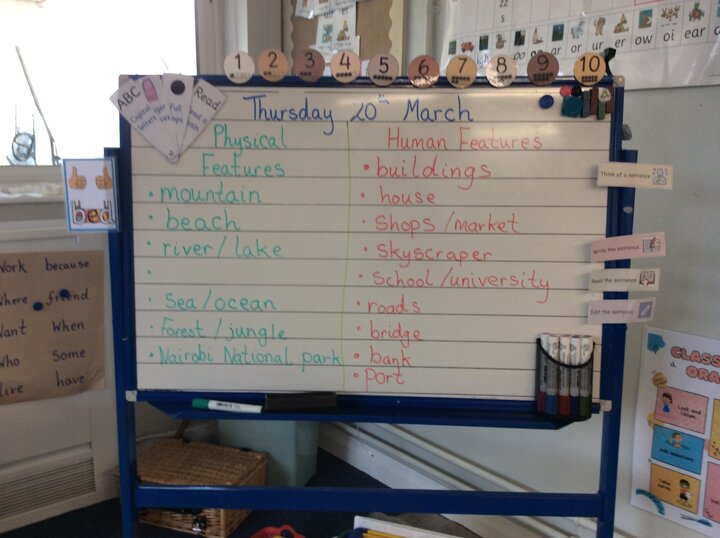 1 2 3 4 5 6 7 8 9 10
ur er ow oi ear
ABC
Capital letters
Full
Read
Thursday 20th March
Physical Features
Human Features
• mountain
• beach
• river/lake
•
• Sea/ocean
• Forest/jungle
• Nairobi National park
• buildings
• house
• Shops/market
• Skyscraper
• School/university
• roads
• bridge
• bank
• Port
bed
Work because
Where friend
Want When
Who Some
live have
Think of a sentence
Write the sentence
Read the sentence
Edit the sentence
CLASS
ORA
Look and listen
Ask questions
Take turns